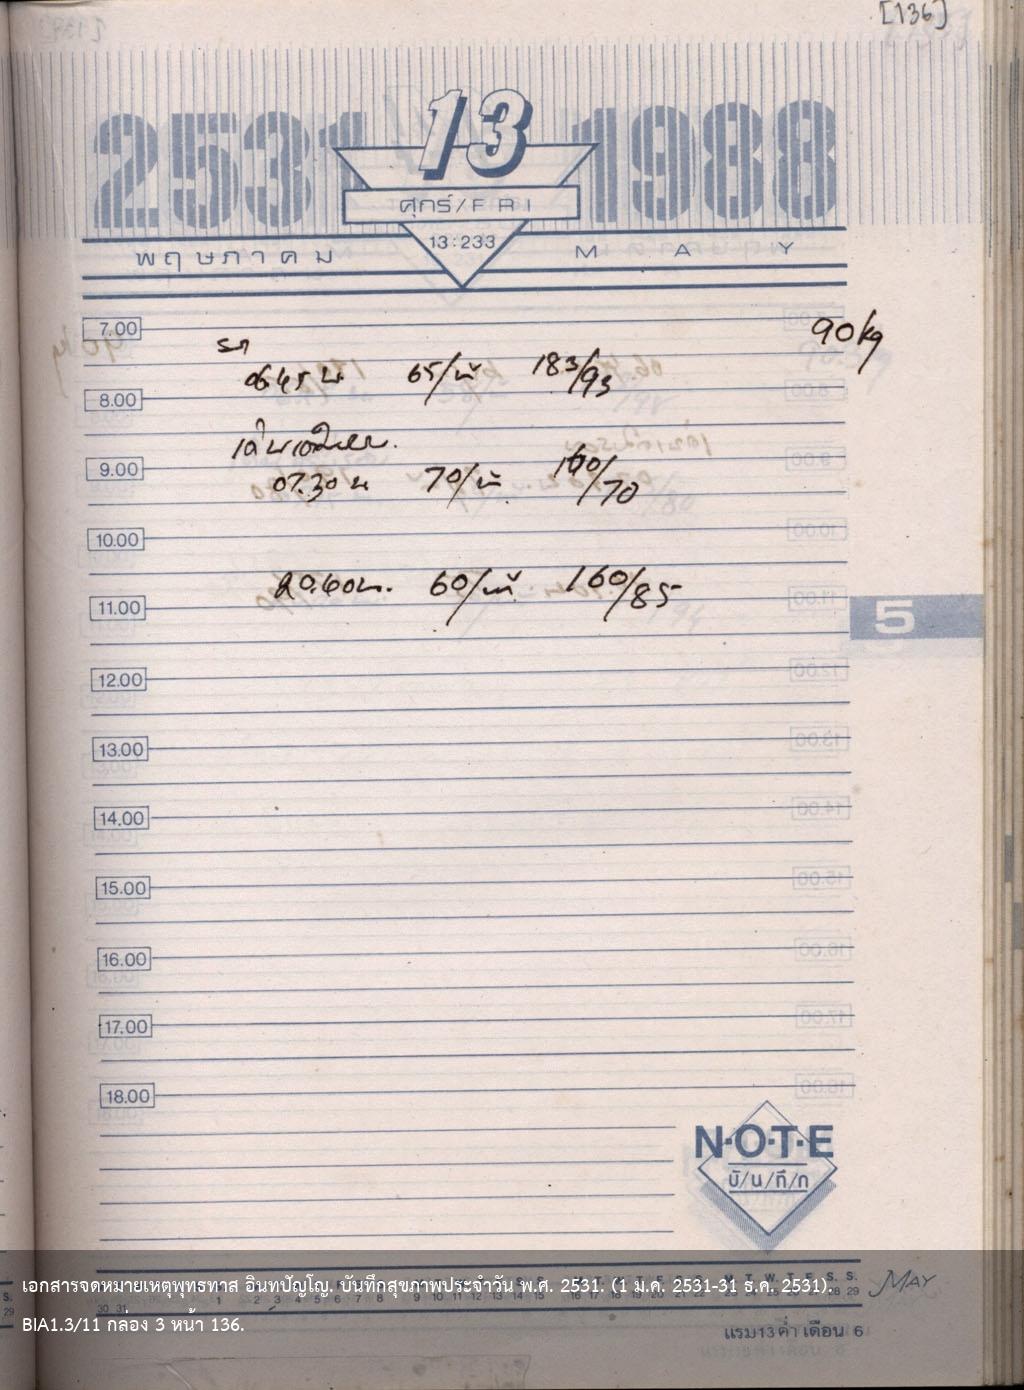 [136]
2531 13 1988
ศุกร์/FRI
13:233
พฤษภาคม MAY
7.00
90 kg
06.45 น. 65/น 183/93
8.00
9.00
07.30 น 70/น 160/70
10.00
20.00น. 60/น 160/85
11.00
5
12.00
13.00
14.00
15.00
16.00
17.00
18.00
N·O·T·E
บั/น/ทึ/ก
MAY
เอกสารจดหมายเหตุพุทธทาส อินทปัญโญ. บันทึกสุขภาพประจำวัน พ.ศ. 2531. (1 ม.ค. 2531-31 ธ.ค. 2531).
BIA1.3/11 กล่อง 3 หน้า 136.
แรม13ค่ำ เดือน 6